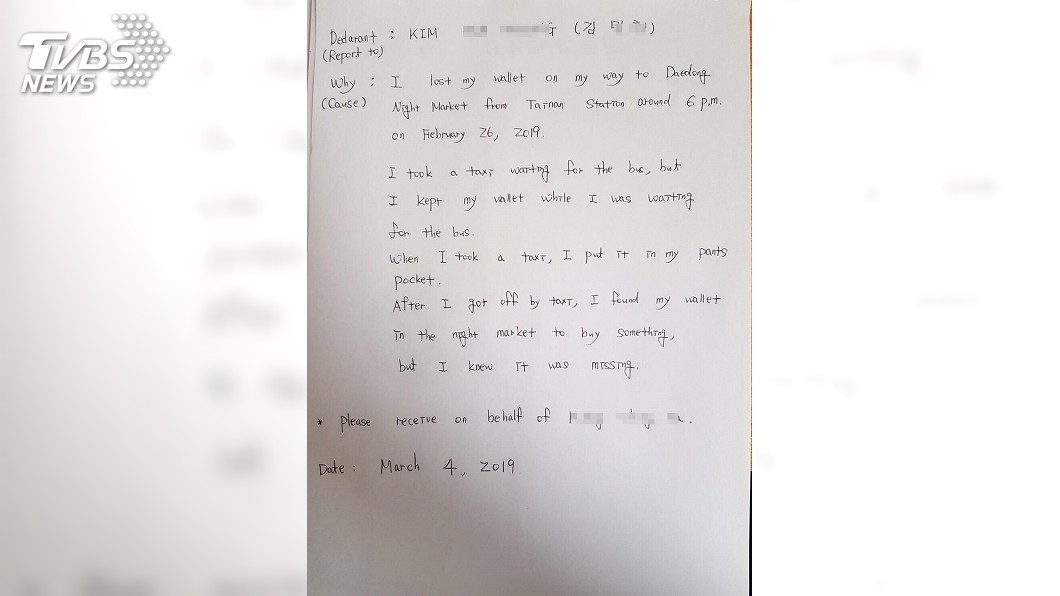 TVBS
NEWS
Declarant : KIM (김
(Report to)
Why : I lost my wallet on my way to Daedong
(Cause) Night Market from Tainan Station around 6 p.m.
on February 26, 2019.
I took a taxi waiting for the bus, but
I kept my wallet while I was waiting
for the bus.
When I took a taxi, I put it in my pants
pocket.
After I got off by taxi, I found my wallet
in the night market to buy something,
but I knew it was missing.
* Please receive on behalf of
Date : March 4, 2019